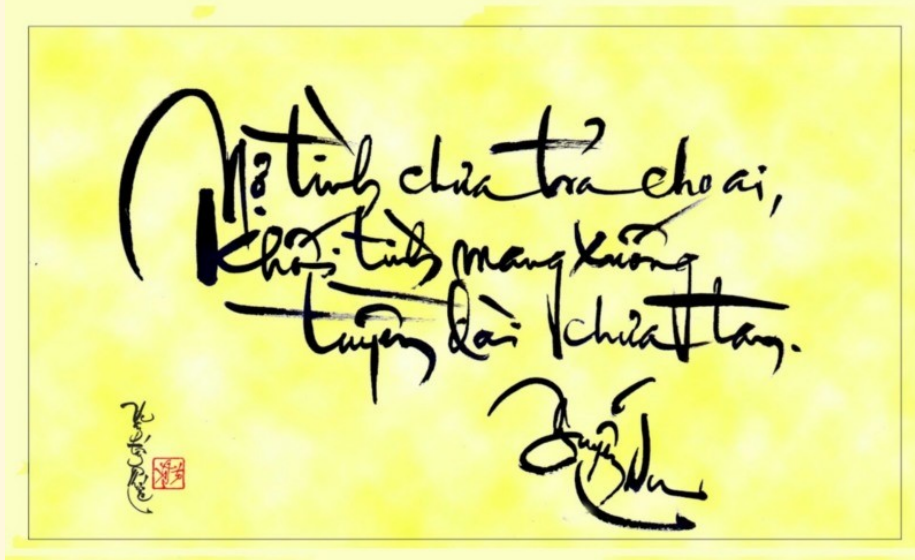 Nợ tình chưa trả cho ai,
Khối tình mang xuống
tuyền đài chưa tan.
Nguyễn Du